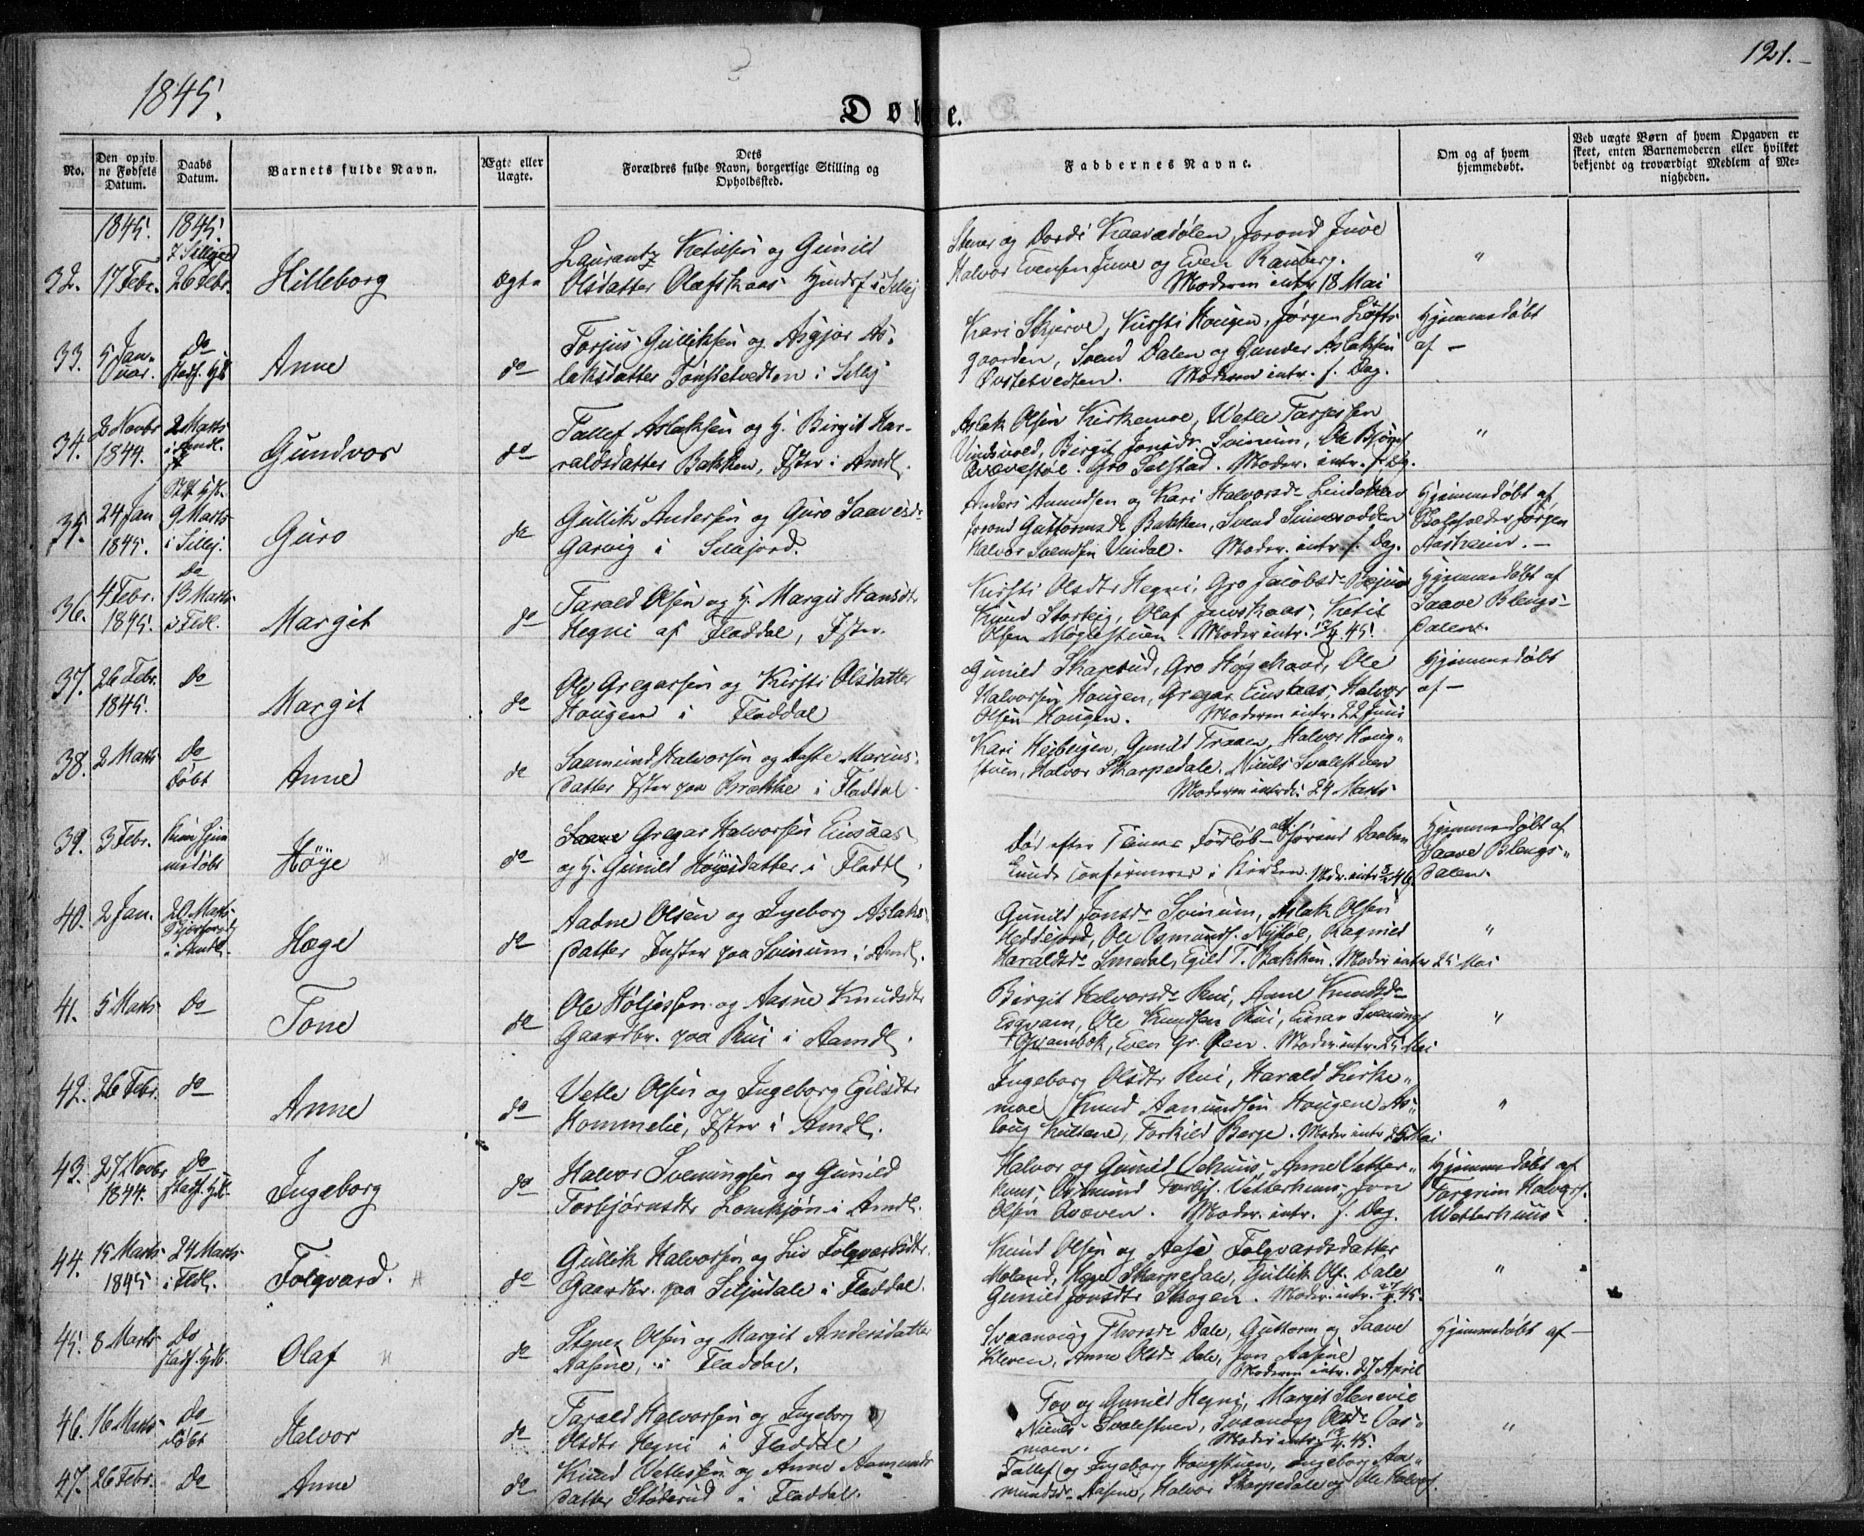 121.
1845.
Døbte.
No.
Den opgiv-
ne Fødsels
Datum.
Daabs
Datum.
Barnets fulde Navn.
Ægte eller
Uægte.
Dets
Forældres fulde Navn, borgerlige Stilling og
Opholdssted.
Faddernes Navne.
Om og af hvem
hjemmedøbt.
Ved uægte Børn af hvem Opgaven er
skeet, enten Barnemoderen eller hvilket
bekjendt og troværdigt Medlem af Me-
nigheden.
1845.
1845.
32. 17 Febr. 26 Febr. Hilleborg
Ægte
Laurantz Ketilsen og Gunild
Olsdatter Olafskaas
Halvor Evensen Juve og Even Rauberg.
Moderen intr. 18 Mai
"
33. 5 Jan-
uar.
Do
Anne
do
Torjus Gulliksen og Asgjør As-
laksdatter
Kari Skjerve, Kirsti Hougen, Jørgen Løfts-
gaarden, Svend Dalen og Gunder Aslaksen
Moderen intr. s. Dag.
Hjemmedøbt
af —
34. 8 Novbr
1844.
2 Marts
i Amdl.
Gundvor
do
Tallef Aslaksen og H. Birgit Har-
raldsdatter Bakken, Ister i Amdl.
Aslak Olsen Kirkemoe, Vetle Tarjessen
Gro Selstad. Moder. intr. s. Dg.
"
35. 24 Jan
1845.
9 Marts
i Sillej.
Guro
do
Gullik Andersen og Guro Saavesd.
Garvig i Sillejord.
Anders Aamundsen og Kari Halvorsdr
Guttormsdr Bakken, Svend
Halvor Svendsen Vindal. Moder. intr. s. Dag.
Hjemmedøbt af
Jørgen
Aasheim. —
36. 4 Febr.
1845.
Do
13 Marts
i Fldl.
Margit
do
Tarald Olsen og H. Margit Hansdtr
Hegni af Fladdal, Ister.
Kirsti Olsdtr Hegni, Gro Jacobsdr
Knud Storlej, Olaf Juvskaas, Ketil
Olsen Møglestuen. Moder intr. 12/4 45.
Hjemmedøbt af
Saave Blengs-
dalen.
37. 26 Febr.
1845.
Do
Margit
do
Ole Gregarsen og Kirsti Olsdatter
Hougen i Fladdal
Gunild Skarerud, Gro Høgehaad, Ole
Halvorsen Hougen, Gregar Einstaas, Halvor
Olsen Hougen. Moderen intr. 22 Juni
Hjemmedøbt
af —
38. 2 Marts
Do
døbt
Anne
do
Saamund Halvorsen og Aaste Marcus-
datter Ister paa Brække i Fladdal.
Kari Hejbligen, Gunild Traaen, Halvor Houg-
stuen, Halvor Skarpedale, Niculs Svalestuen
Moderen introd. 24 Marts
39. 3 Febr.
Kun hjem-
medøbt
Høije
do
Gregar Halvorsen Einsaas
og H. Gunild Høijesdatter i Fladdl.
Død efter Times Forløb
Confirmeres i Kirken.
Hjemmedøbt af
Saave Blengs-
dalen.
40. 2 Jan.
20 Marts
i Amdl.
Hæge
do
Aadne Olsen og Ingeborg Aslaks-
datter Inster paa Svinum i Amdl.
Gunild Jonsdr Svinum, Aslak Olsen
Heddejord, Ole Osmunds. Nystoe, Ragnild
Haraldsdr Smedal, Egild T. Bakken. Moder intr 25 Mai
"
41. 5 Marts
Do
Tone
do
Ole Høljesen og Aasne Knudsdtr
Gaardbr. paa Rui i Aamdl.
Birgit Halvorsdr Rui, Anne Knudsdr
Ole Knudsen Rui, Einar Svenings.
Qvambek, Even Gr. Moder. intr. 25 Mai
"
42. 26 Febr.
do
Anne
do
Vetle Olsen og Ingeborg Egilsdtr
Hommelie, Ister i Amdl.
Ingeborg Olsdtr Rui, Harald Kirke-
moe, Knud Aamundsen Hougene, As-
laug Kultane, Torkild Berge. Moder intr 25 Mai
"
43. 27 Novbr
1844.
Do
Ingeborg
do
Halvor Sveningsen og Gunild
Torbjørnsdtr Lomkjøn i Amdl.
Halvor og Gunild Vehuus, Anne Vetter-
huus, Osmund Torbjs. Vetterhuus, Jon
Olsen Qvæven. Moder. intr. s. Dag.
Hjemmedøbt af
Torgrim Halvors.
Wetterhuus
44. 15 Marts
1845
24 Marts
i Fldl.
Folqvard.
do
Gullik Halvorsen og Liv Folqvardsdtr.
Gaardbr. paa Siljudale i Fladdal.
Knud Olsen og Aase Folqvardsdatter
Moland, Skarpedale, Gullik Ols. Dale
Gunild Jonsdtr Skogen. Moder. intr. 27/4 45.
"
45. 8 Marts
Do
Olaf
do
Stener Olsen og Margit Andersdatter
Aasene, i Fladdal.
Svaanvig Thorsdr Dale, Guttorm og Saave
Kleven, Anne Olsdr Dale, Jon Aasene
Moderen intr. 27 April
Hjemmedøbt af —
46. 16 Marts
Do
døbt
Halvor
do
Tarald Halvorsen og Ingeborg
Olsdtr Hegni i Fladdal
Tov og Gunild Hegni, Margit Slenevie
Niculs Svalestuen, Svaanvig Olsdr Oas-
moen. Moder intr. 12/4 45.
"
47. 26 Febr.
Do
Anne
do
Knud Vetlesen og Anne Aamunds-
datter Støverud i Fladdal.
Tallef og Ingeborg Hougstuen, Ingeborg Aa-
mundsdr Aasene, Halvor Skarpedale og Ole Halvors.